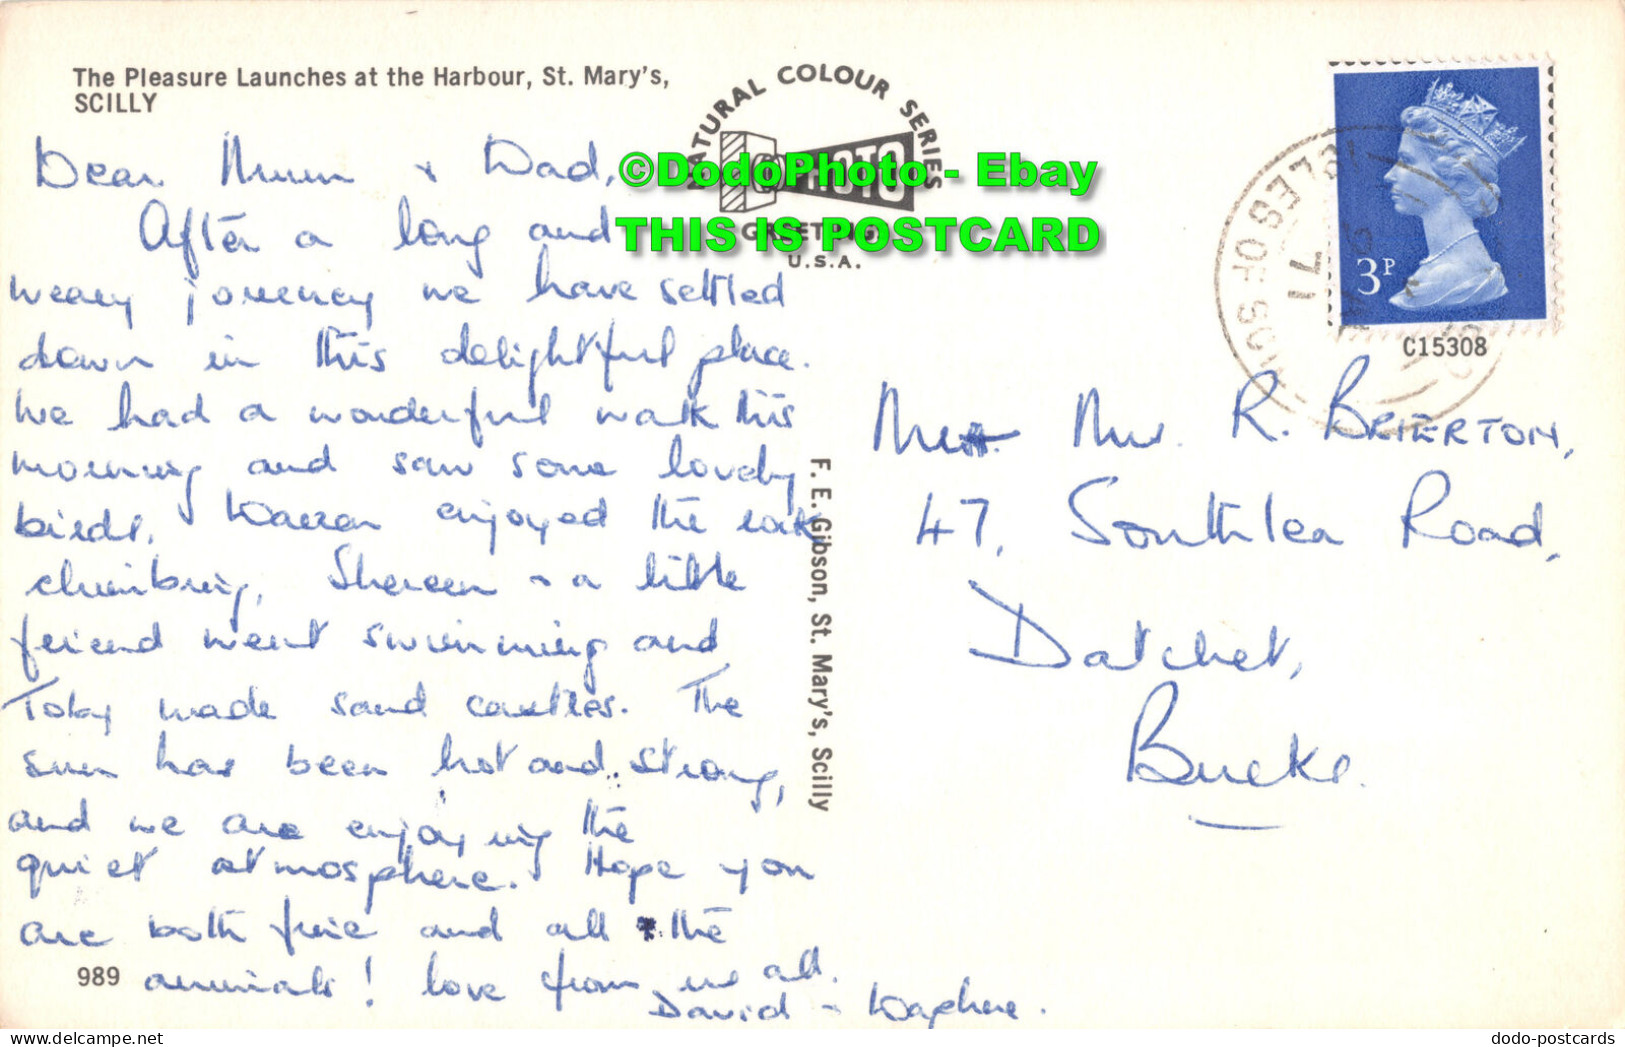 The Pleasure Launches at the Harbour, St. Mary's,
SCILLY
Dear Mum + Dad,
After a long and
weary journey we have settled
down in this delightful place.
We had a wonderful walk this
morning and saw some lovely
birds. Warren enjoyed the rock
climbing, Shereen + a little
friend went swimming and
Toby made sand castles. The
sun has been hot and strong,
and we are enjoying the
quiet atmosphere. Hope you
are both fine and all the
animals! love from us all.
David + Daphne.
989
NATURAL COLOUR SERIES
PHOTO
GREETING
U.S.A.
©DodoPhoto - Ebay
THIS IS POSTCARD
F. E. Gibson, St. Mary's, Scilly
ISLES OF SCILLY
71
3P
C15308
Mr. R. BRIERTON,
47, Southlea Road,
Datchet,
Bucks.
dodo-postcards